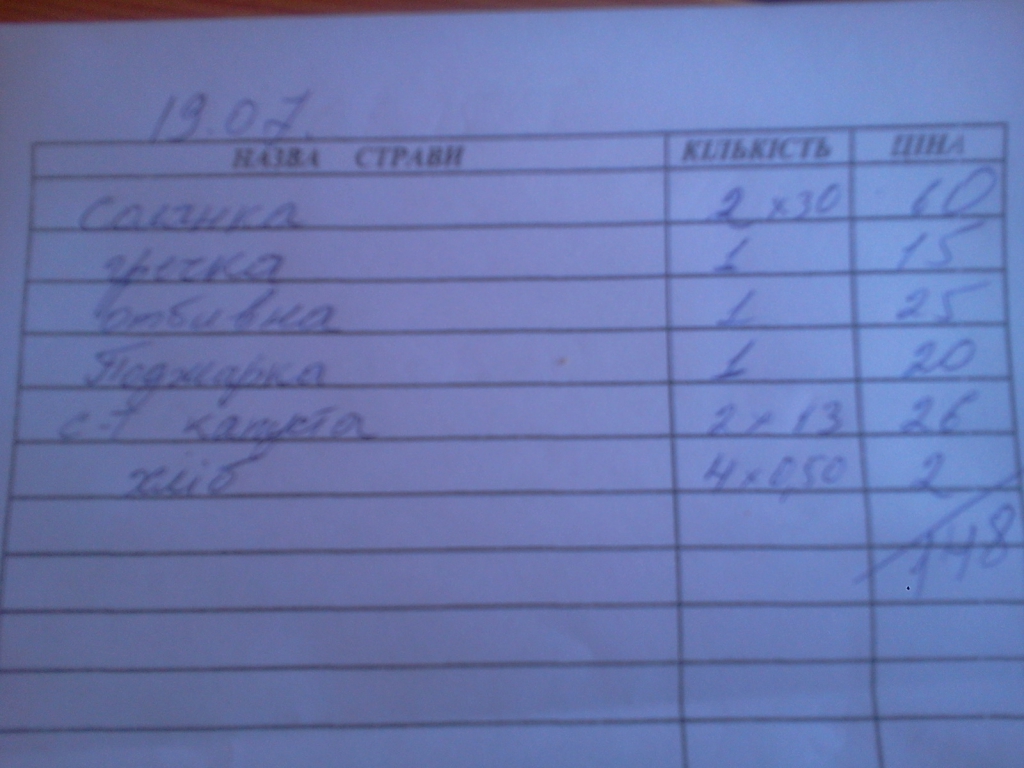 19.07.
НАЗВА СТРАВИ КІЛЬКІСТЬ ЦІНА
Солянка 2 x 30 60
гречка 1 15
отбивна 1 25
Поджарка 1 20
с-т капуста 2 x 13 26
хліб 4 x 0,50 2
148